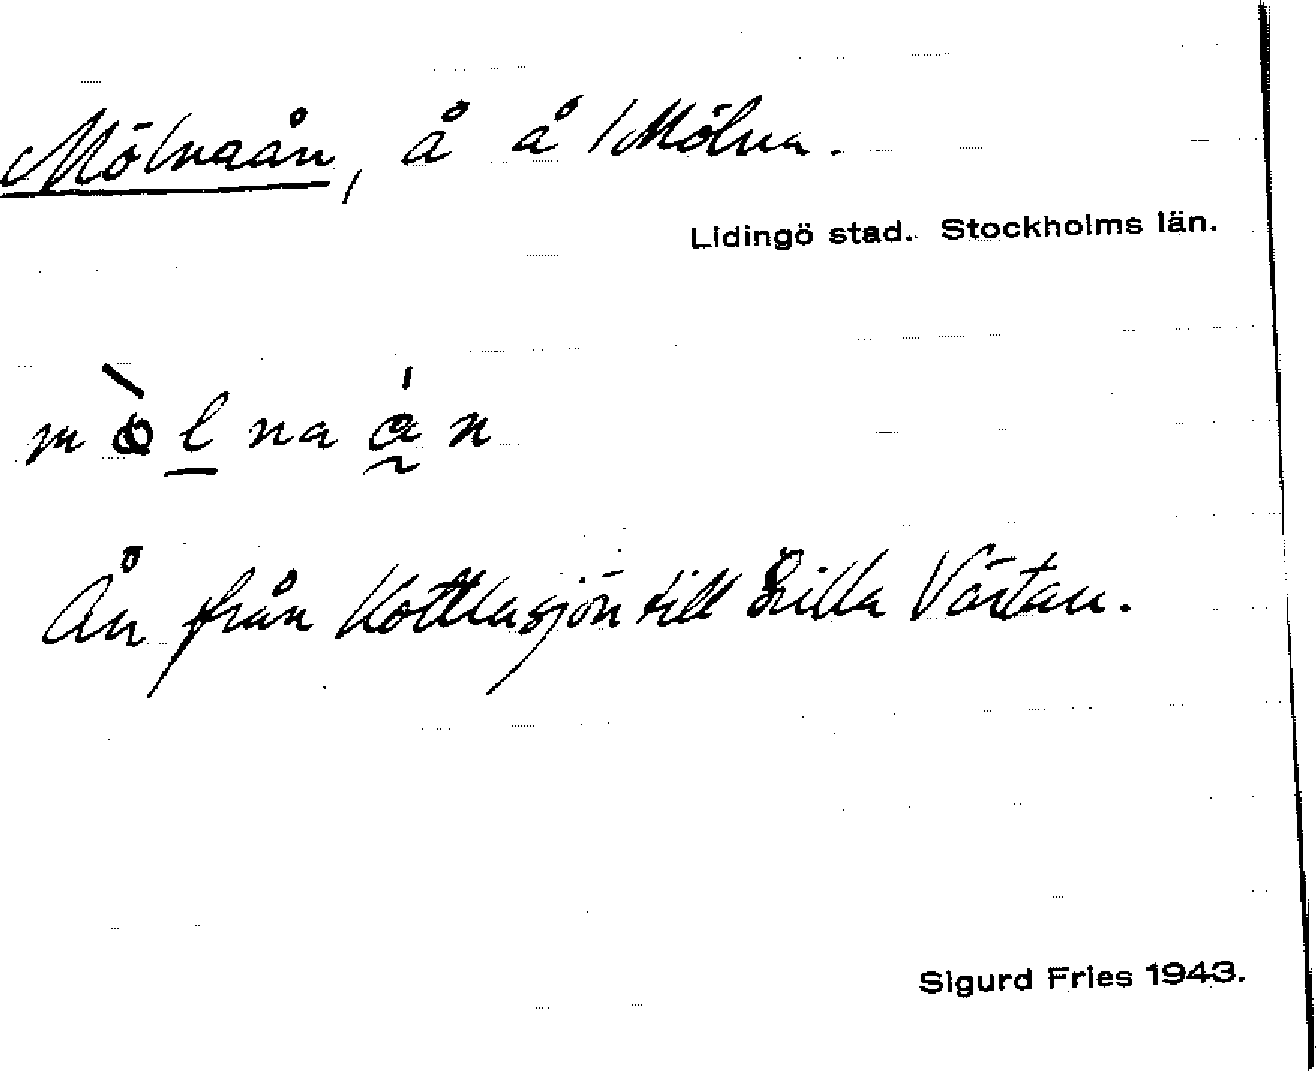 Mölnaån, å å Mölna.
Lidingö stad. Stockholms län.
Ån från Kottlasjön till Lilla Värtan.
Sigurd Fries 1943.